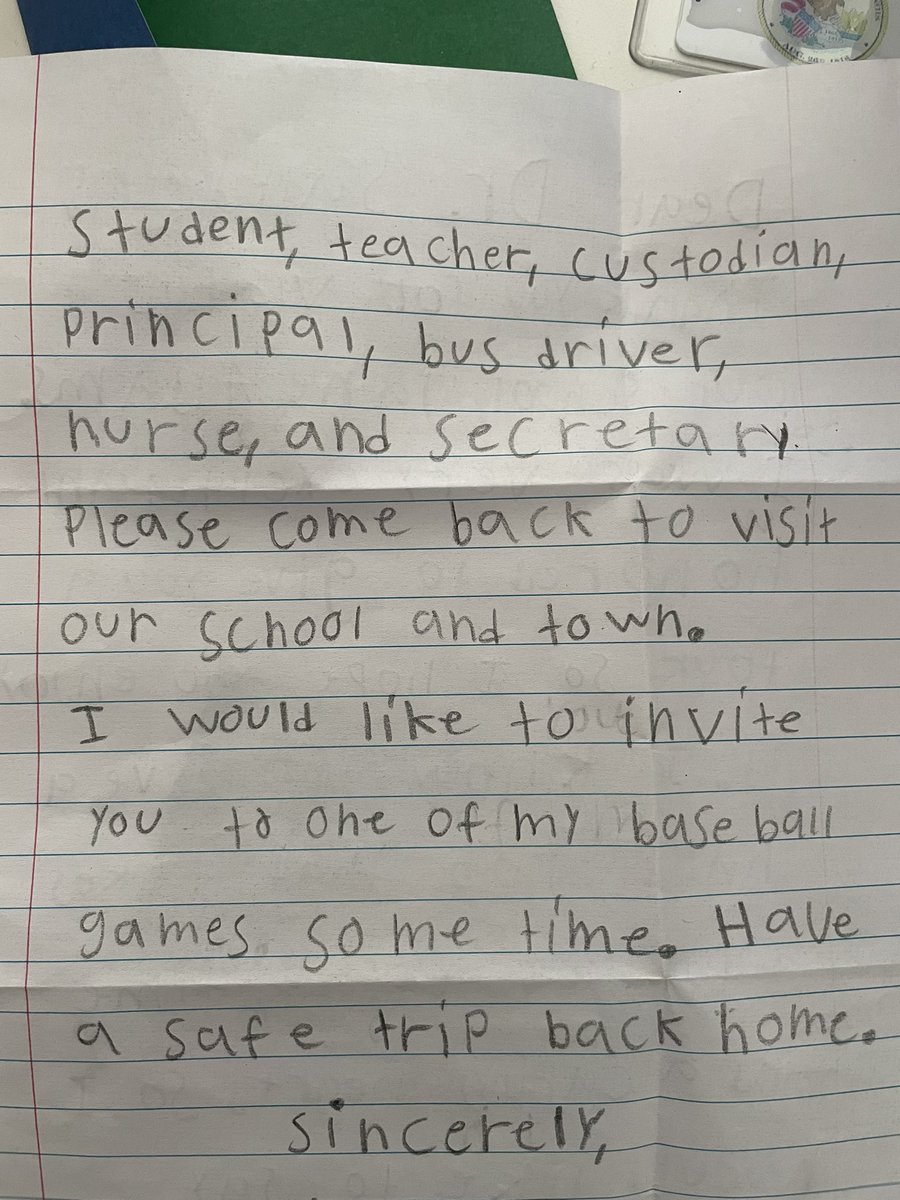 Student, teacher, custodian,
principal, bus driver,
nurse, and secretary.
Please come back to visit
our school and town.
I would like to invite
you to one of my baseball
games some time. Have
a safe trip back home.
sincerely,